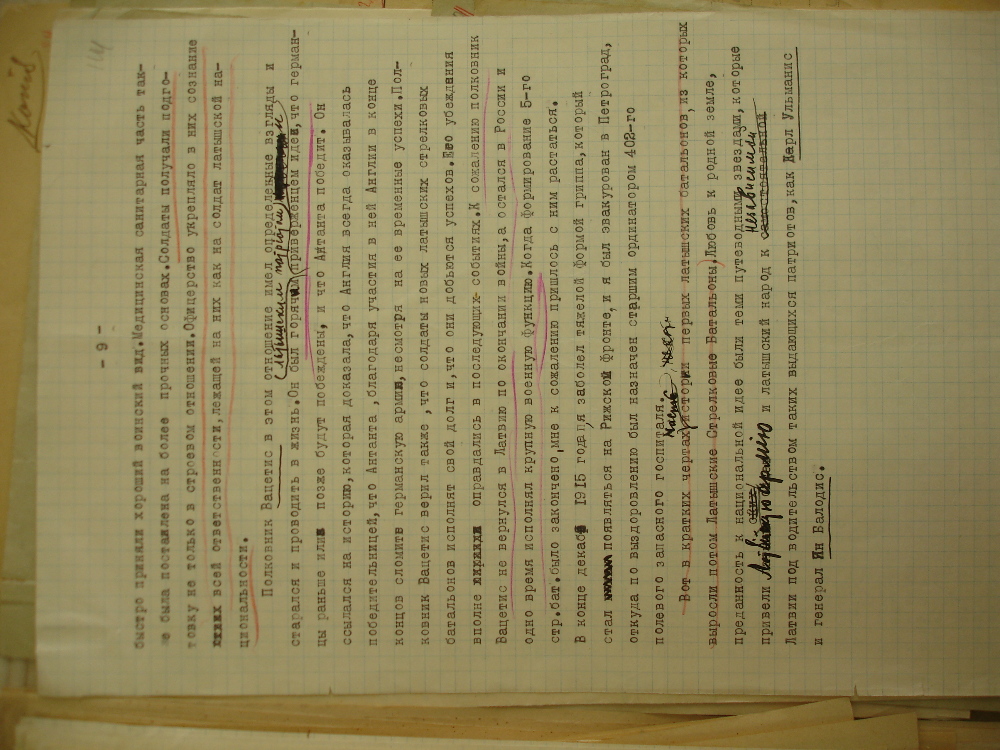 Копия
- 9 -
быстро приняли хороший воинский вид. Медицинская санитарная часть так-
же была поставлена на более прочных основах. Солдаты получали подго-
товку не только в строевом отношении. Офицерство укрепляло в них сознание
всей ответственности, лежащей на них как на солдат латышской на-
циональности.
Полковник Вацетис в этом отношение имел определеные взгляды и
старался и проводить в жизнь. Он был горячим приверженцем идеи, что герман-
цы раньше или позже будут побеждены, и что Антанта победит. Он
ссылался на историю, которая доказала, что Англия всегда оказывалась
победительницей, что Антанта, благодаря участия в ней Англии в конце
концов сломите германскую армию, несмотря на ее временные успехи. Пол-
ковник Вацетис верил также, что солдаты новых латышских стрелковых
батальонов исполнят свой долг и, что они добьются успехов. Его убеждения
вполне оправдались в последующих событиях. К сожалению полковник
Вацетис не вернулся в Латвию по окончани войны, а остался в России и
одно время исполнял крупную военную функцию. Когда формирование 5-го
стр. бат. было закончено, мне к сожалению пришлось с ним растаться.
В конце декаб 1915 года я заболел тяжелой формой гриппа, который
стал появляться на Рижской фронте, и я был эвакурован в Петроград,
откуда по выздоровлению был назначен старшим ординатором 402-го
полевого запасного госпиталя.
Вот в кратких чертах часть истории первых латышских батальонов, из которых
выросли потом Латышские Стрелковые Баталъоны. Любовь к родной земле,
преданность к национальной идее были теми путеводными звездами, которые
независимой
привели и латышский народ к самостоятельной
Латвии под водительством таких выдающихся патриотов, как Карл Ульманис
и генерал Ян Балодис.